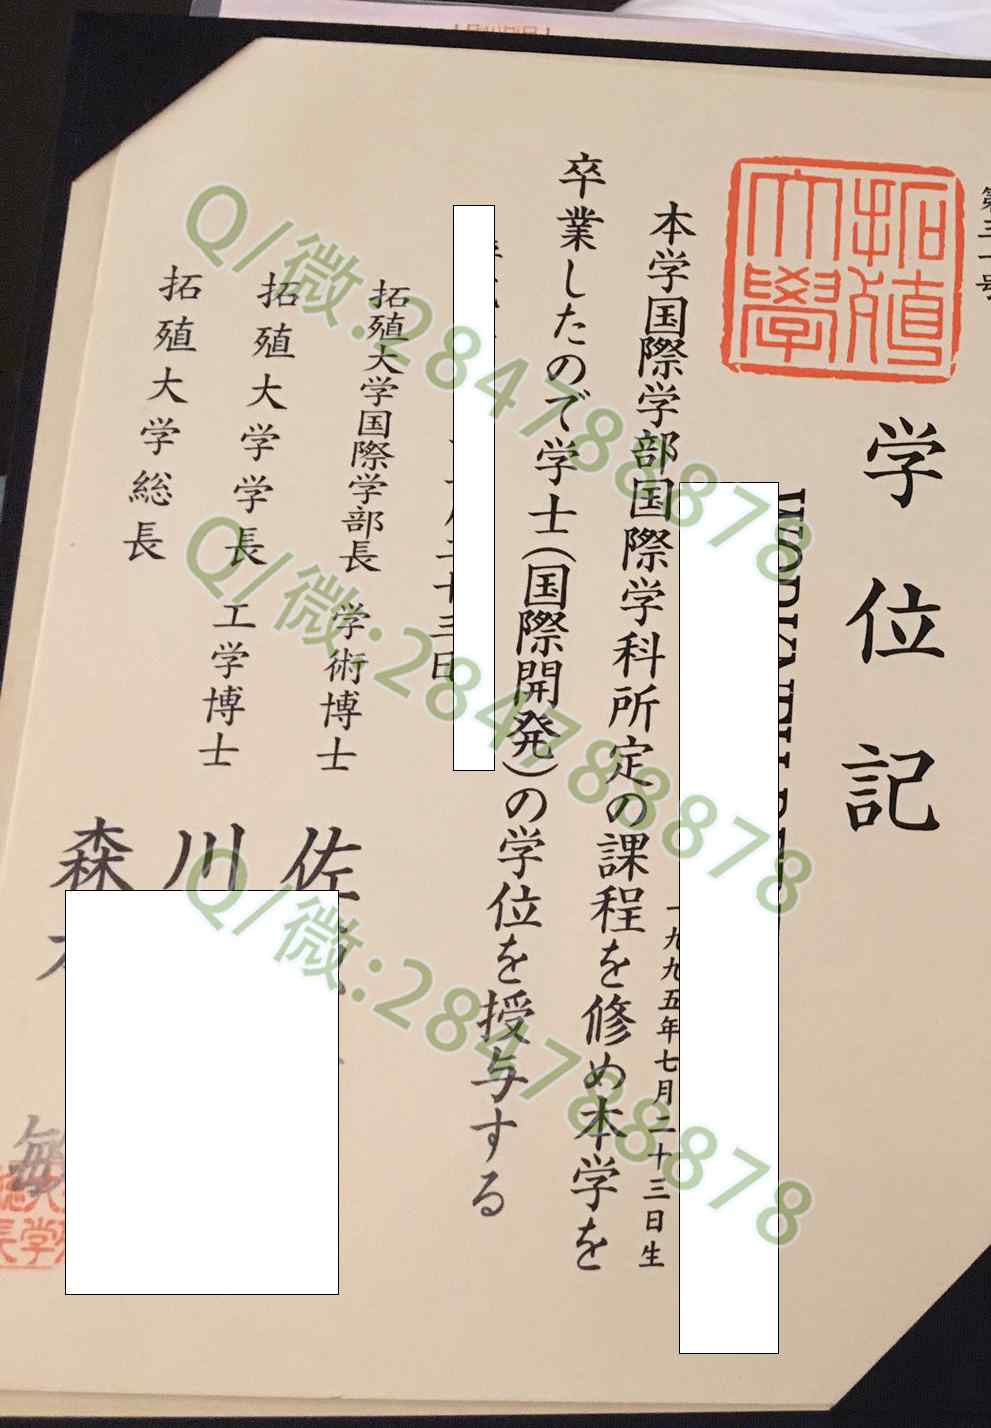 第三一号
拓殖大學
学位記
一九九五年七月二十三日生
本学国際学部国際学科所定の課程を修め本学を
卒業したので学士(国際開発)の学位を授与する
二十三日
拓殖大学国際学部長 学術博士 佐
拓殖大学学長 工学博士 川
拓殖大学総長 森
Q/微:284788878
Q/微:284788878
Q/微:284788878